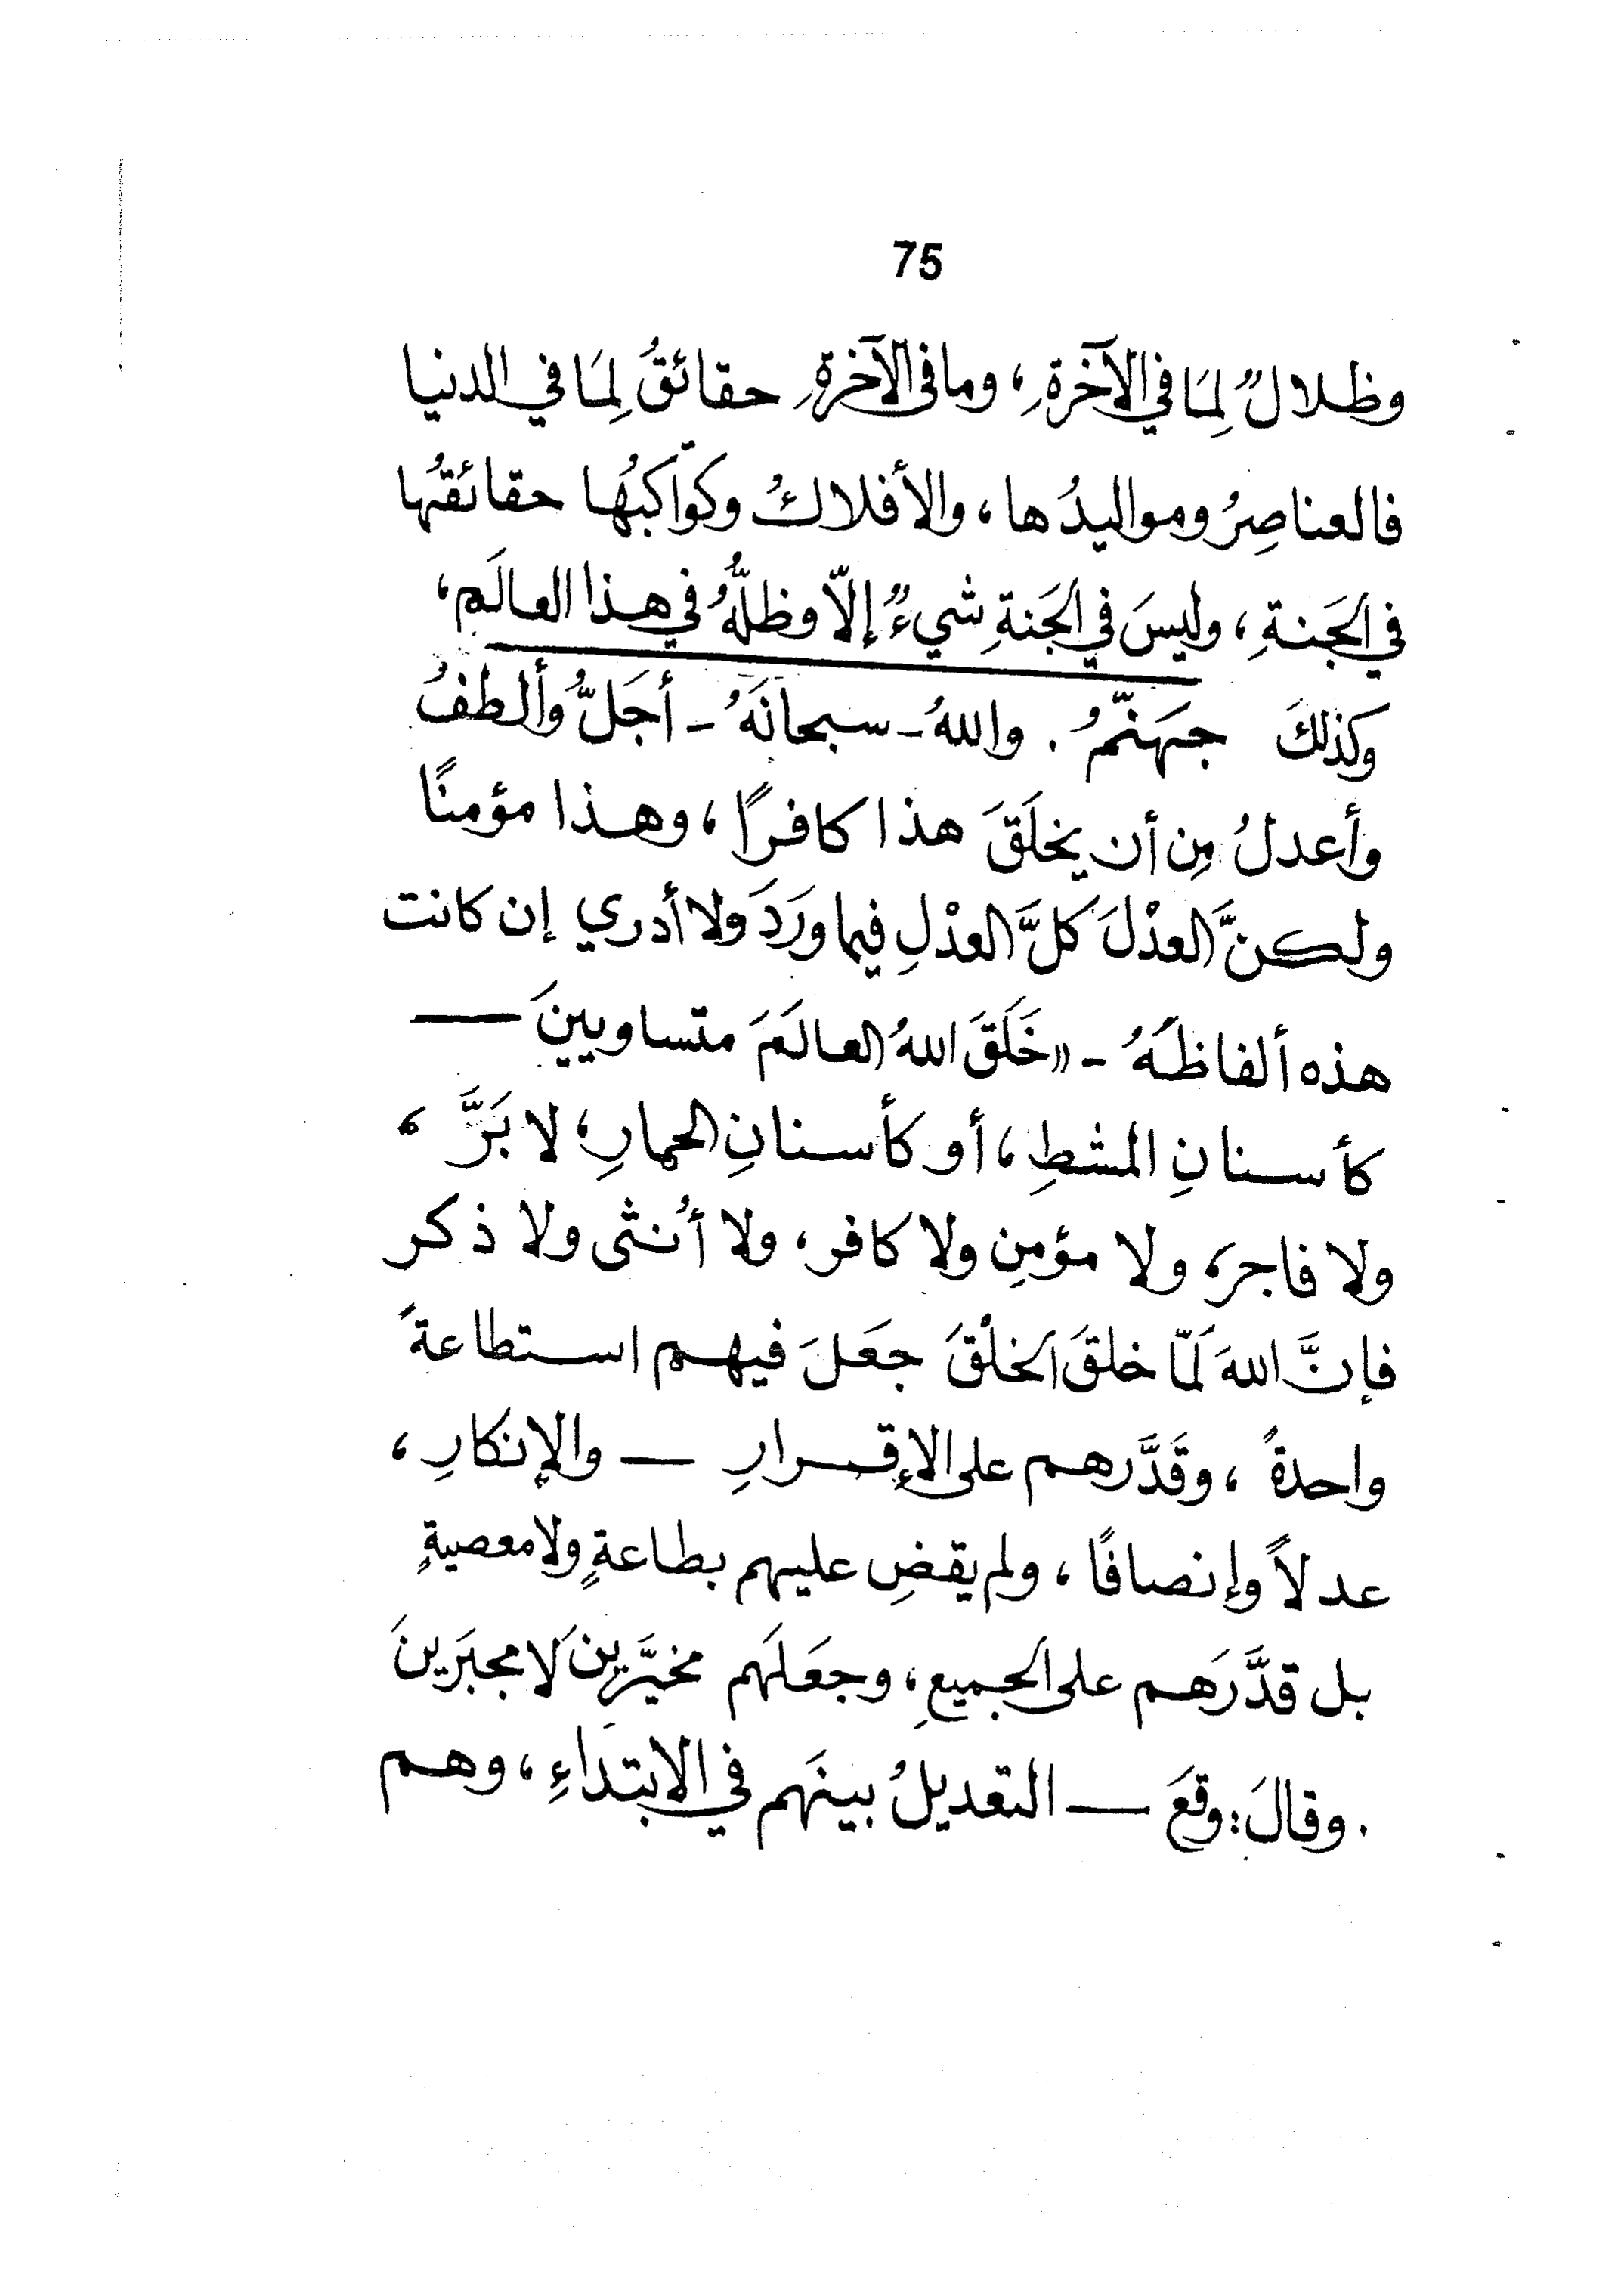 75
وظلالٌ لِمَا في الآخرةِ، وما في الآخرةِ حقائقُ لِمَا في الدنيا
فالعناصِرُ ومواليدُها، والأفلاكُ وكواكبُها حقائقُها
في الجَنةِ، وليسَ في الجَنةِ شيءٌ إلاّ وظلُّهُ في هذا العالَم،
وكذلكَ جهَنّمُ. واللهُ - سبحانَهُ - أجَلُّ وألطفُ
وأعدلُ مِن أن يخلَقَ هذا كافرًا، وهذا مؤمنًا
ولكنَّ العدْلَ كلَّ العدْلِ فيما ورَدَ ولا أدري إن كانت
هذه ألفاظَهُ - «خَلَقَ اللهُ العالَمَ متساويينَ —
كأسنانِ المشطِ، أو كأسنانِ الحمارِ، لا بَرَّ،
ولا فاجرَ، ولا مؤمن ولا كافر، ولا أُنثى ولا ذكر
فإنَّ اللهَ لَمّا خلقَ الخلْقَ جعَلَ فيهم استطاعةً
واحدةً، وقَدَّرهم على الإقرارِ — والإنكارِ،
عدلاً وإنصافًا، ولم يقضِ عليهم بطاعةٍ ولا معصيةٍ
بل قدَّرَهم على الجميعِ، وجعَلَهم مخيَّرينَ لا مجبَرينَ
. وقالَ: وقعَ — التعديلُ بينَهم في الابتداءِ، وهم